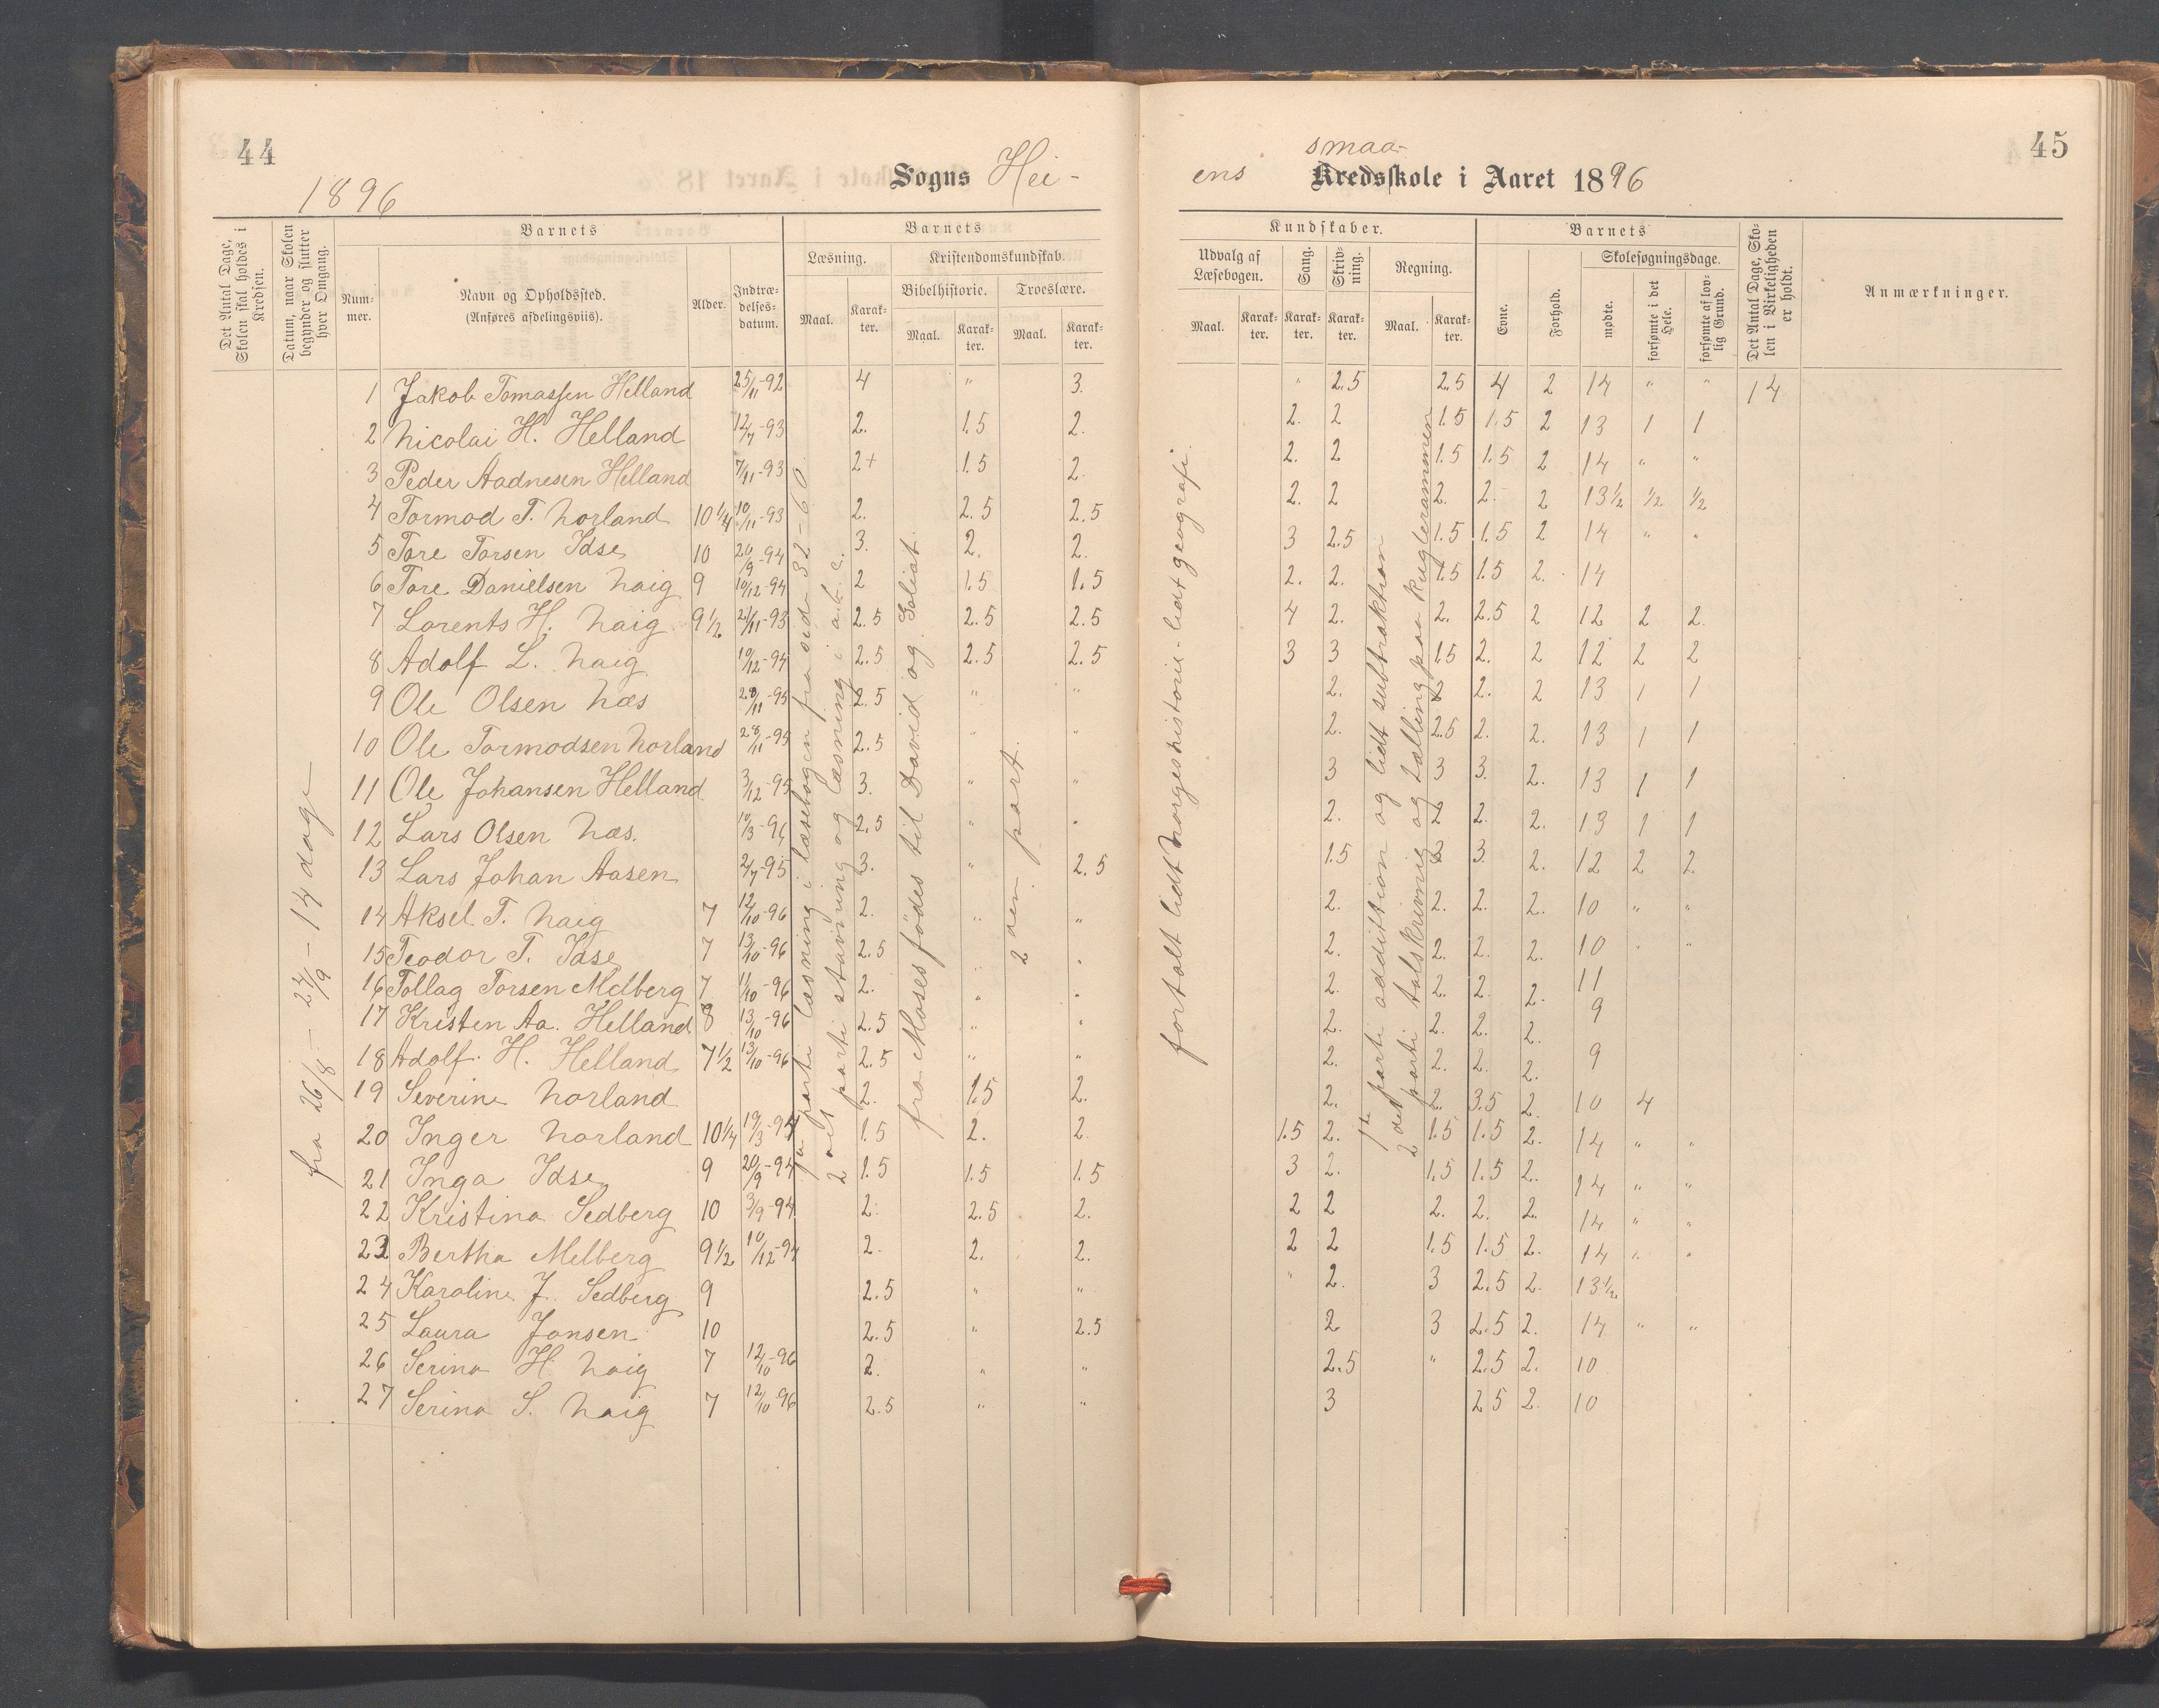 44
1896
Sogns Hei-
Det Antal Dage, Skolen skal holdes i Kredsen.
Datum, naar Skolen begynder og slutter hver Omgang.
Barnets
Num-mer.
Navn og Opholdssted.
(Anføres afdelingsviis).
Alder.
Indtræ-delses-datum.
Barnets
Læsning.
Maal.
Karak-ter.
Kristendomskundskab.
Bibelhistorie.
Maal.
Karak-ter.
Troeslære.
Maal.
Karak-ter.
fra 26/8 - 24/9 - 14 dage
1 Jakob Tomassen Helland 25/11-92 4 " 3.
2 Nicolai H. Helland 12/7-93 2. 1.5 2.
3 Peder Aadnesen Helland 7/11-93 2+ 1.5 2.
4 Tormod T. Norland 10 1/4 10/11-93 2. 2.5 2.5
5 Tore Torsen Idse 10 20/9-94 3. 2. 2.
6 Tore Danielsen Naig 9 10/12-94 2 1.5 1.5
7 Lorents H. Naig 9 1/2 21/11-93 2.5 2.5 2.5
8 Adolf L. Naig 19/12-94 2.5 2.5 2.5
9 Ole Olsen Næs 28/11-95 2.5 " "
10 Ole Tormodsen Norland 28/11-95 2.5 " "
11 Ole Johansen Helland 3/12-95 3. " "
12 Lars Olsen Næs. 10/3-96 2.5 " "
13 Lars Johan Aasen 2/7-95 3. " 2.5
14 Aksel T. Naig 7 12/10-96 2. " "
15 Teodor T. Idse 7 13/10-96 2.5 " "
16 Tollag Torsen Melberg 7 1/10-96 2. " "
17 Kristen Aa. Helland 8 13/10-96 2.5 " "
18 Adolf H. Helland 7 1/2 13/10-96 2.5 " "
19 Severine Norland 2. 1.5 2.
20 Inger Norland 10 1/4 19/3-94 1.5 2. 2.
21 Inga Idse 9 20/9-94 1.5 1.5 1.5
22 Kristina Sedberg 10 3/9-94 2. 2.5 2.
23 Bertha Melberg 9 1/2 10/12-94 2. 2. 2.
24 Karoline J. Sedberg 9 2.5 " "
25 Laura Jonsen 10 2.5 " 2.5
26 Serina H Naig 7 12/10-96 2. " "
27 Serina S. Naig 7 12/10-96 2.5 " "
parti læsning i læsebogen fra side 32-60
2det parti stavning og læsning i
fra Moses fødes til David og Goliat.
2den part.
45
smaa-
ens Kredsskole i Aaret 1896
Kundskaber.
Udvalg af Læsebogen.
Maal.
Karak-ter.
Sang.
Karak-ter.
Skriv-ning.
Karak-ter.
Regning.
Maal.
Karak-ter.
Barnets
Evne.
Forhold.
Skolesøgningsdage.
mødte.
forsømte i det Hele.
forsømte af lov-lig Grund.
Det Antal Dage, Sko-len i Virkeligheden er holdt.
Anmærkninger.
" 2.5 2.5 4 2 14 " " 14
2. 2 1.5 1.5 2 13 1 1
2. 2 1.5 1.5 2 14 " "
2. 2 2. 2. 2 13 1/2 1/2 1/2
3 2.5 1.5 1.5 2 14 " "
2. 2. 1.5 1.5 2. 14
4 2. 2. 2.5 2 12 2 2.
3 3 1.5 2. 2 12 2 2
2. 2 2. 2 13 1 1
2. 2.5 2. 2. 13 1 1
3 3 3. 2. 13 1 1
2. 2 2. 2. 13 1 1
1.5 3 3. 2. 12 2 2.
2. 2. 2. 2. 10 " "
2. 2. 2. 2. 10 " "
2. 2. 2. 2. 11
2. 2. 2. 2. 9
2. 2. 2. 2. 9
2. 2. 3.5 2. 10 4
1.5 2. 1.5 1.5 2. 14 " "
3 2. 1.5 1.5 2. 14 " "
2 2 2. 2. 2. 14 " "
2 2 1.5 1.5 2. 14 " "
" 2. 3 2.5 2. 13 1/2
2 3 2.5 2. 14 " "
2.5 " 2.5 2. 10
3 2.5 2. 10
fortalt lidt Norgeshistorie - lidt geografi.
1ste parti addittion og lidt subtraktion
2det parti talskrivnig og tælling paa kuglerammen